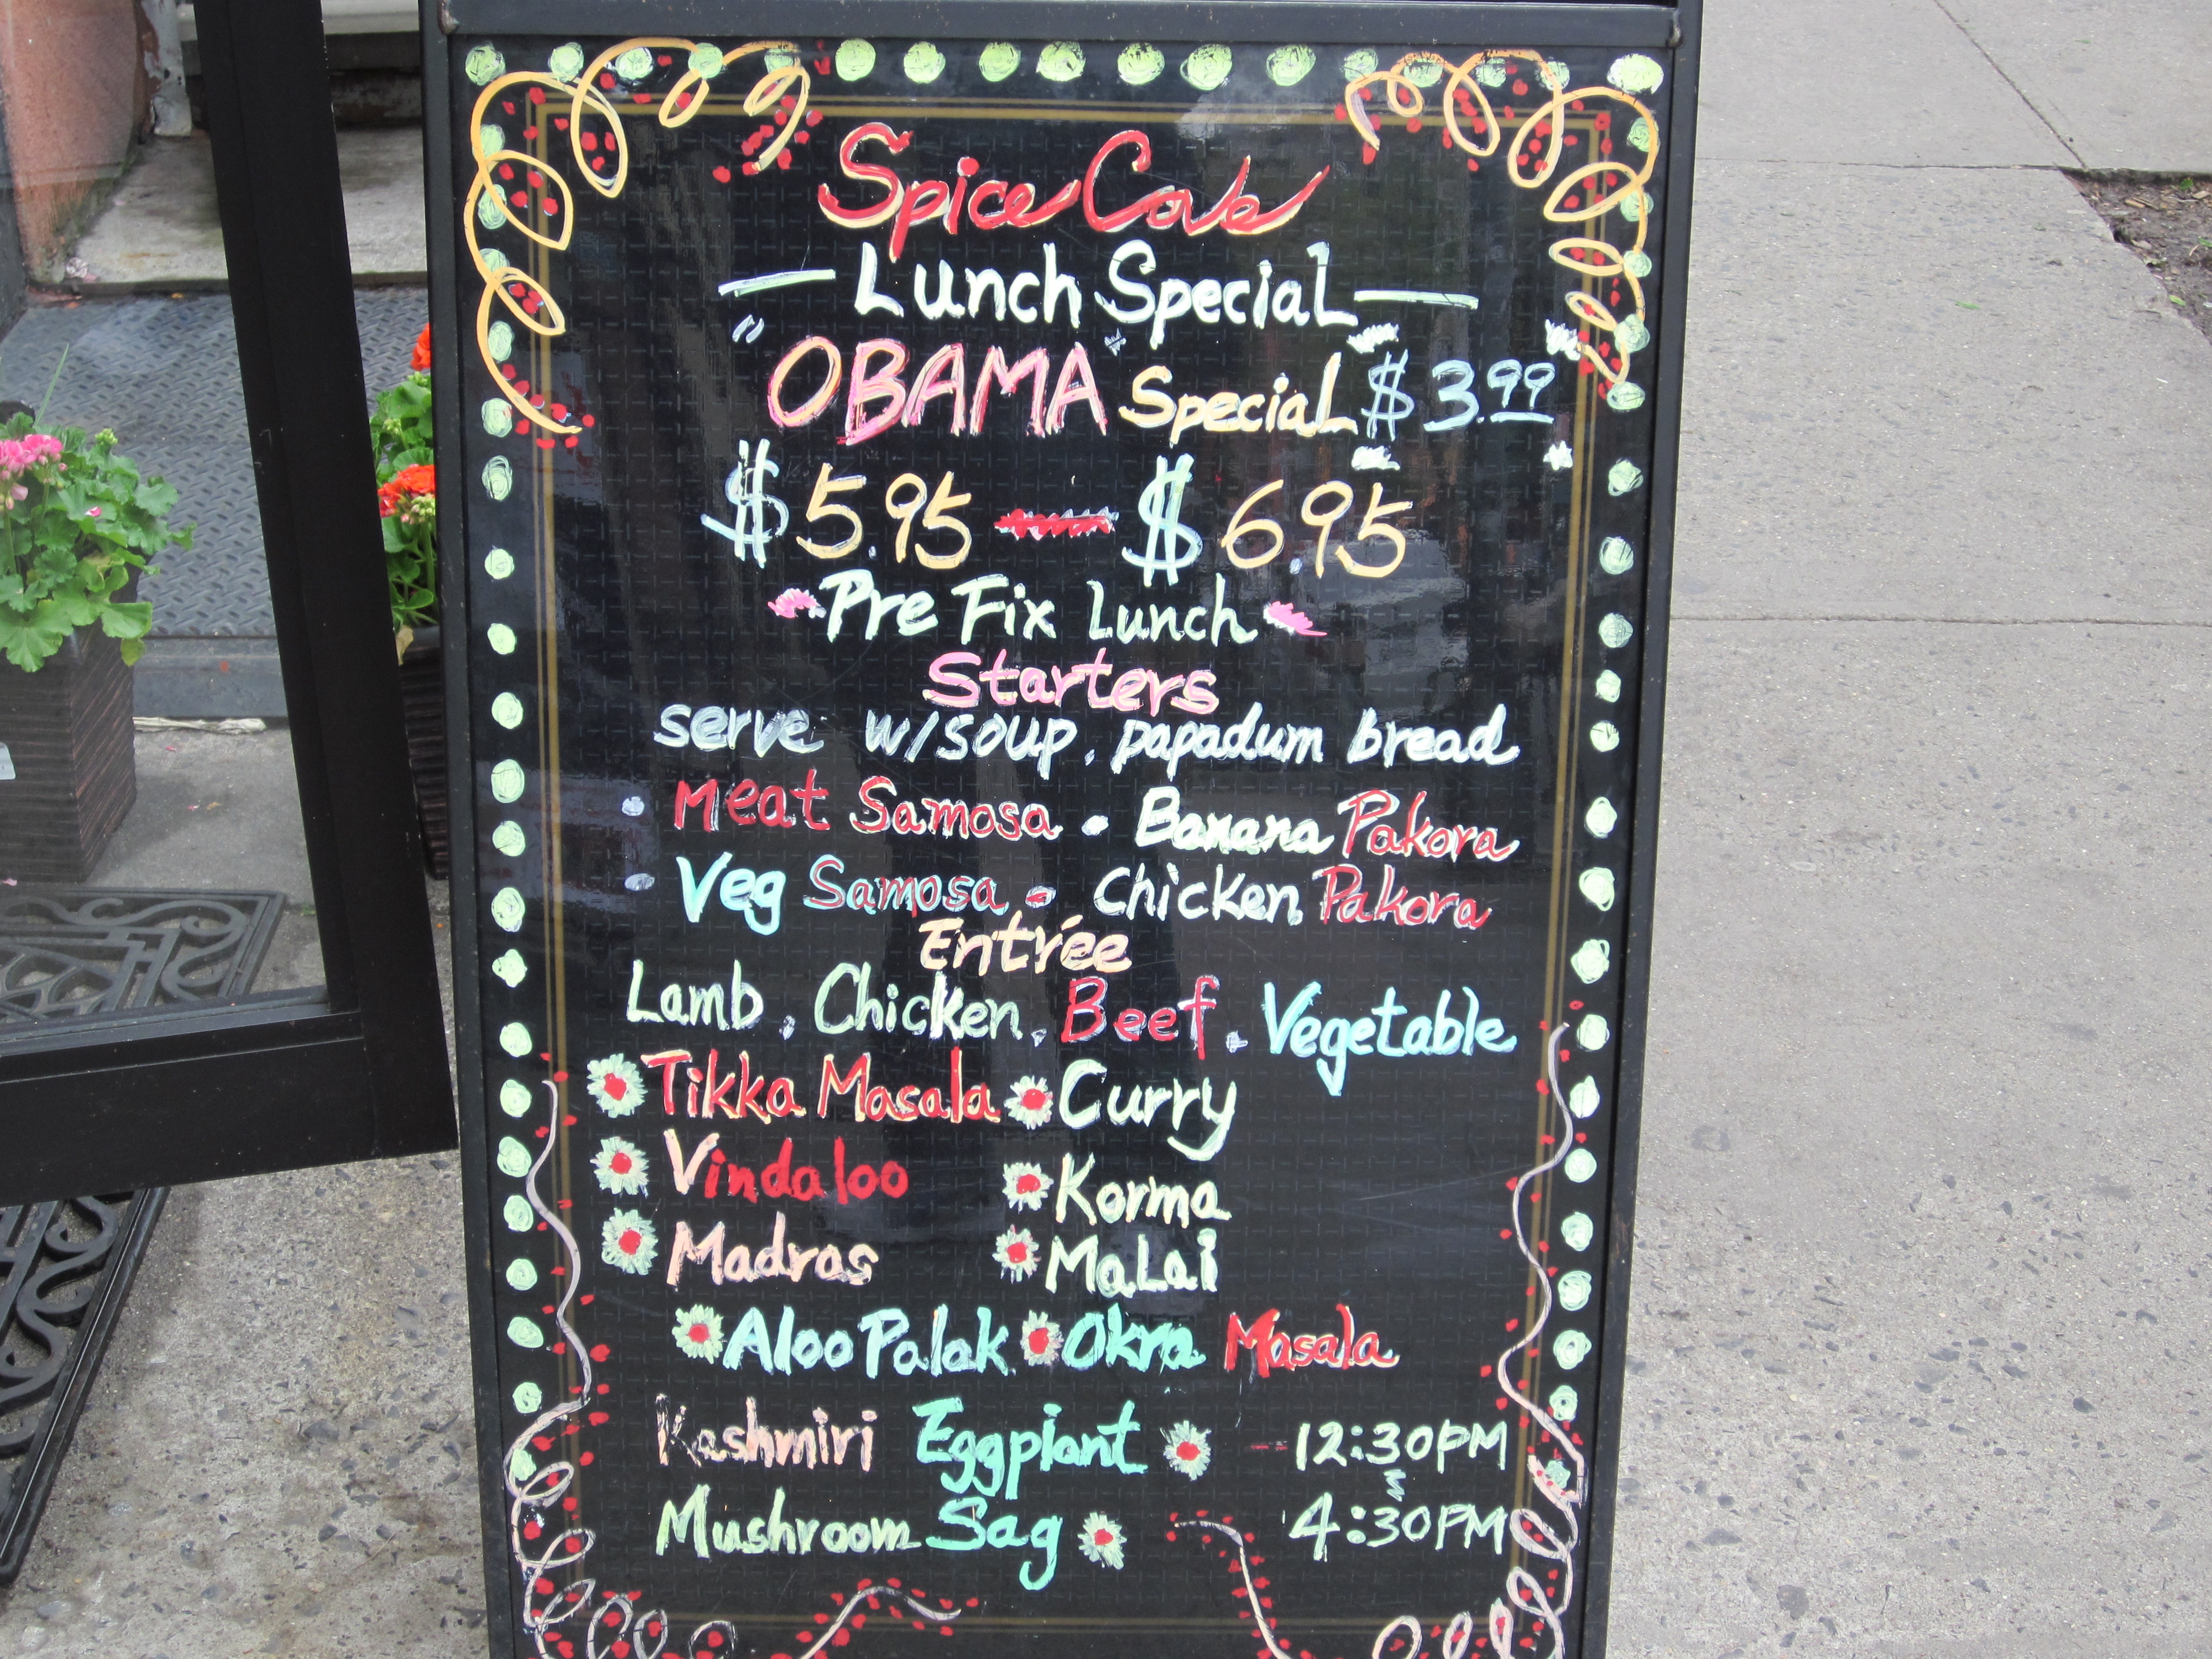 Spice Cove
Lunch Special
"OBAMA" Special $3.99
$5.95 - $6.95
Pre Fix Lunch
Starters
serve w/soup, papadum bread
• Meat Samosa • Banana Pakora
• Veg Samosa • Chicken Pakora
Entrée
Lamb, Chicken, Beef, Vegetable
Tikka Masala Curry
Vindaloo Korma
Madras MaLai
Aloo Palak Okra Masala
Kashmiri Eggplant 12:30PM
Mushroom Sag 4:30PM